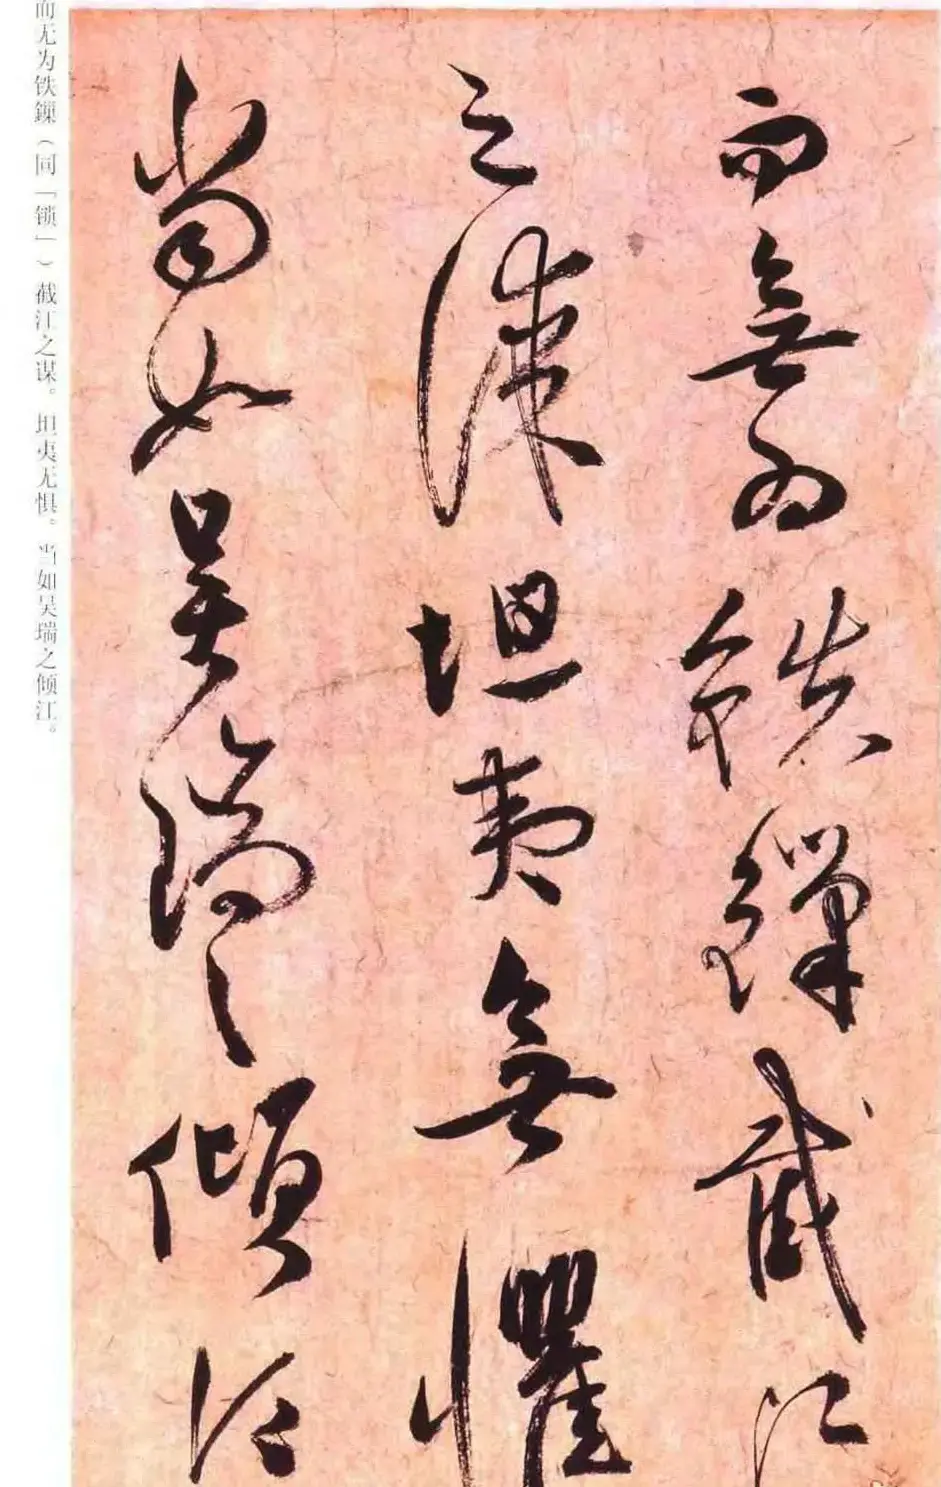 而無为鐵鏁截江
之谋坦夷無懼
當如吴瑞之傾江
而无为铁鏁（同「锁」）截江之谋。坦夷无惧。当如吴瑞之倾江。